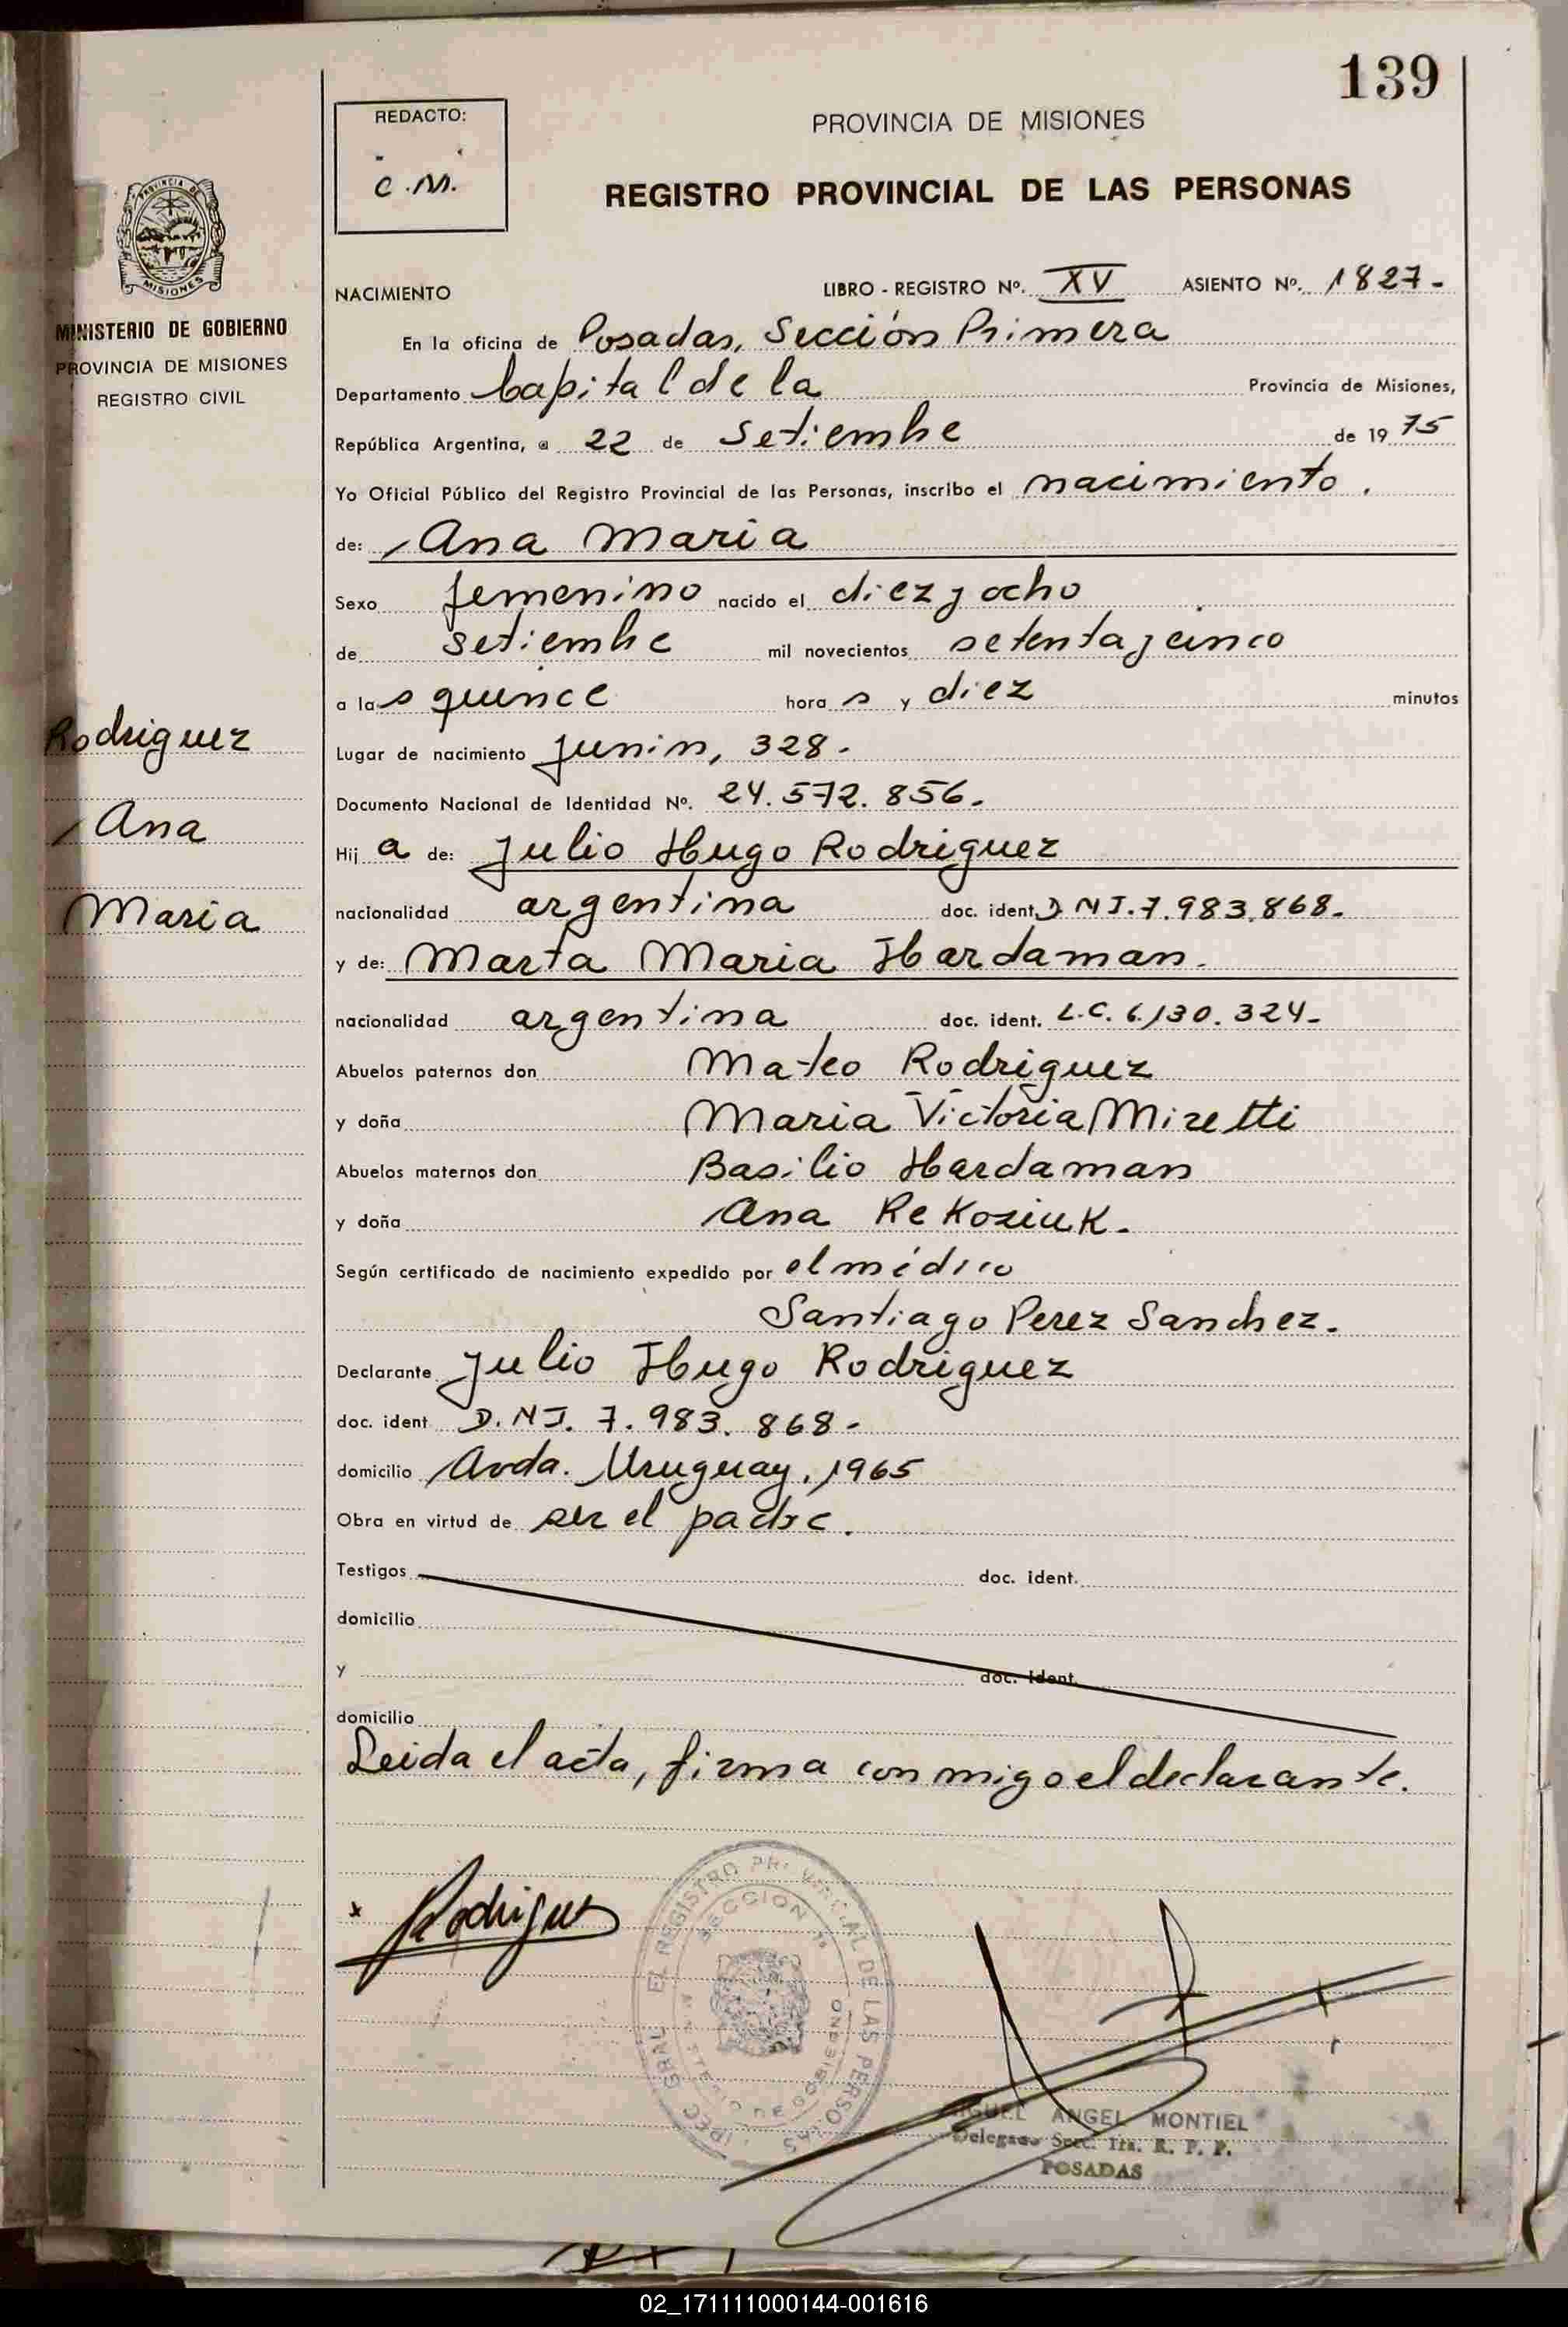 139
REDACTO:
C.M.
PROVINCIA DE MISIONES
REGISTRO PROVINCIAL DE LAS PERSONAS
PROVINCIA DE
MISIONES
MINISTERIO DE GOBIERNO
PROVINCIA DE MISIONES
REGISTRO CIVIL
NACIMIENTO LIBRO - REGISTRO Nº. XV ASIENTO Nº. 1827-
En la oficina de Posadas, Sección Primera
Departamento Capital de la Provincia de Misiones,
República Argentina, a 22 de Setiembre de 1975
Yo Oficial Público del Registro Provincial de las Personas, inscribo el nacimiento.
de: Ana Maria
Sexo femenino nacido el diez y ocho
de setiembre mil novecientos setenta y cinco
a las quince horas y diez minutos
Lugar de nacimiento Junin, 328.
Documento Nacional de Identidad Nº. 24.572.856.
Hija de: Julio Hugo Rodriguez
nacionalidad argentina doc. ident. D.N.I. 7.983.868.
y de: Marta Maria Hardaman.
nacionalidad argentina doc. ident. L.C. 6.130.324-
Abuelos paternos don Mateo Rodriguez
y doña Maria Victoria Mizetti
Abuelos maternos don Basilio Hardaman
y doña Ana Rekosiuk.
Según certificado de nacimiento expedido por el médico
Santiago Perez Sanchez.
Declarante Julio Hugo Rodriguez
doc. ident. D.N.I. 7.983.868-
domicilio Avda. Uruguay, 1965
Obra en virtud de ser el padre.
Testigos doc. ident.
domicilio
y doc. ident.
domicilio
Leida el acta, firma conmigo el declarante.
Rodriguez
Ana
Maria
Rodriguez
SECCION 1ª
MIGUEL ANGEL MONTIEL
Delegado Secc. 1ra. R. P. P.
POSADAS
02_171111000144-001616